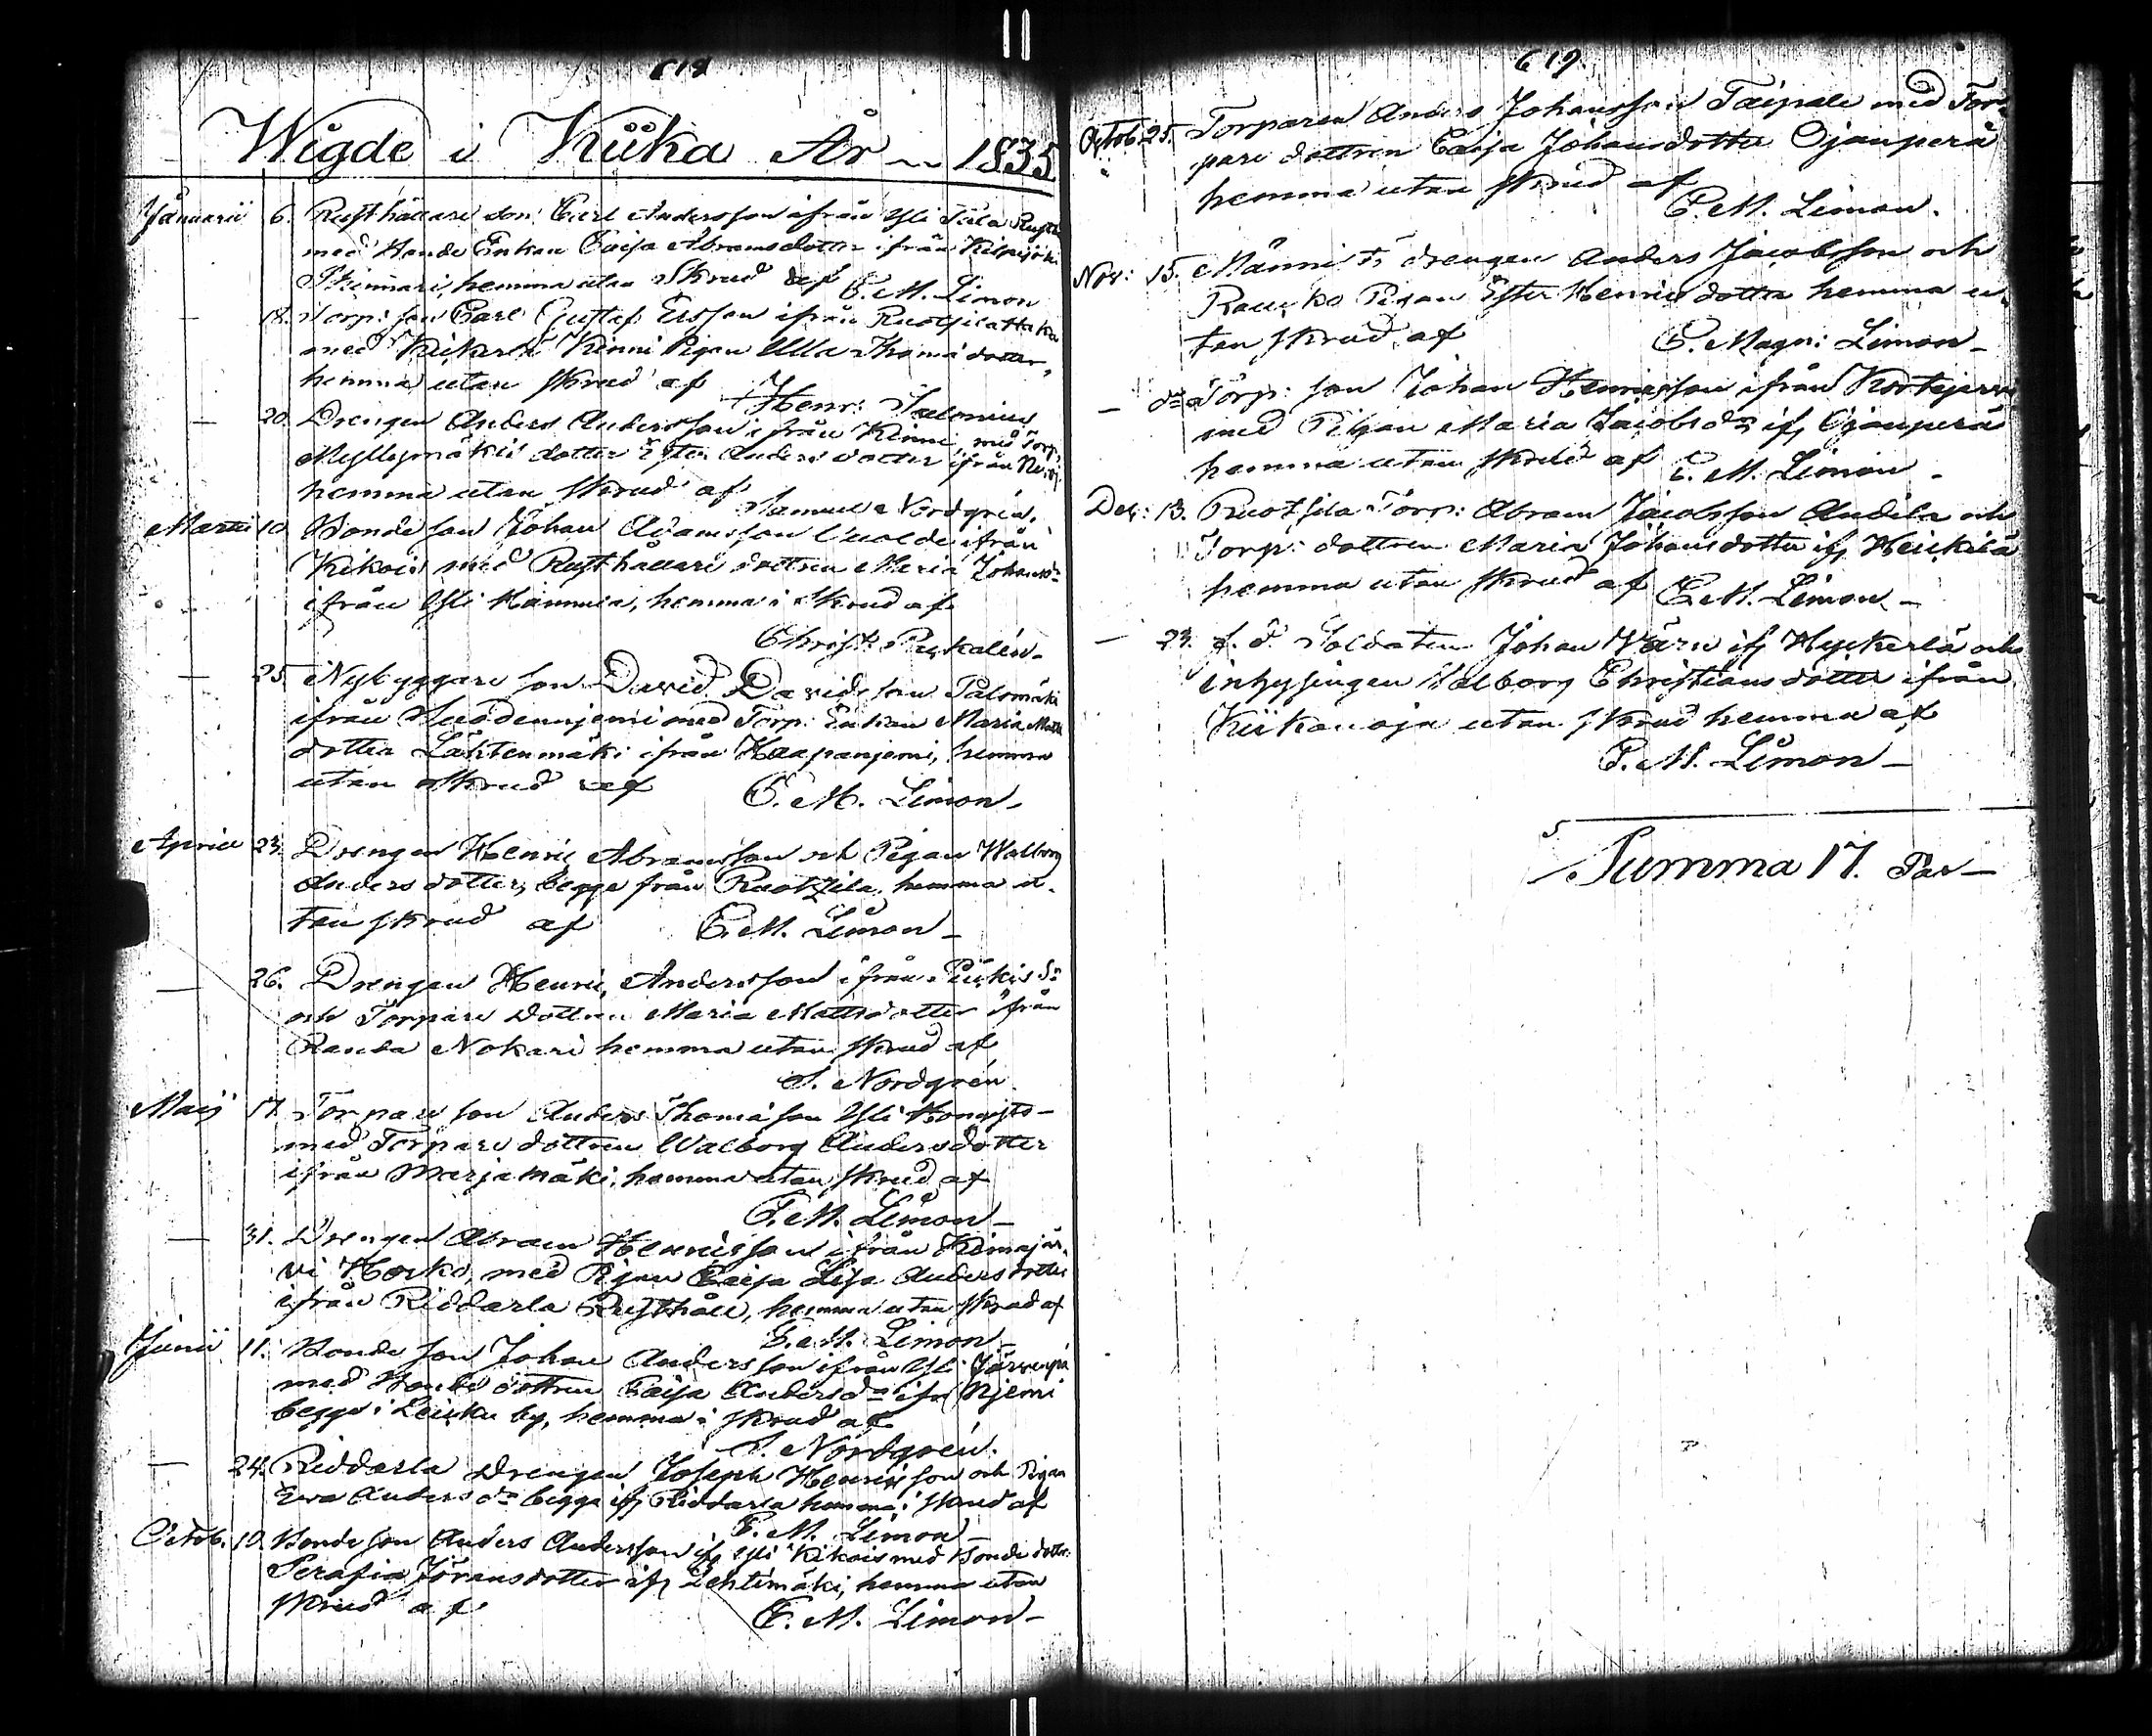 618
Wigde i Kiika År 1835
Januarii 6. Rusthållare son Carl Andersson ifrån Yli Tala Rusth
med Bonde Enkan Caisa Abramsdotter ifrån Kilpijoki
Skinnari, hemma utan Skrud af E. M. Limon
— 18. Torp: son Carl Gustaf Ersson ifrån Ruotsila Haka
med Kiikerlä Kinni Pigan Ulla Thomædotter,
hemma utan skrud af Henr: Salonius
— 20. Drengen Anders Andersson ifrån Kinni med Torp:
Myllymäkis dotter Ester Anders dotter ifrån
hemma utan skrud af Samuel Nordgrén.
Martii 10. Bonde son Johan Adamsson ifrån
Kikois med Rusthållare dottren Maria Johansd:
ifrån Yli hemma i skrud af
Christ:
— 25. Nybyggare son David Davidsson Palomäki
ifrån med Torp: Enkan Maria Matts
dotter Lähtenmäki ifrån Haapaniemi, hemma
utan skrud af E. M. Limon
April 23. Drengen Henric Abramsson och Pigan Walborg
Anders dotter, begge från Ruotzila, hemma u-
tan skrud af E. M. Limon
— 26. Drengen Henric Andersson ifrån
och Torpare dottren Maria Mattsdotter ifrån
Nokari hemma utan skrud af
S. Nordgrén
Maij 17. Torpare son Anders Thomæson Yli
med Torpare dottren Walborg Andersdotter
ifrån Marjamäki, hemma utan skrud af
E. M. Limon
— 31. Drengen Abram Henricsson ifrån Kimajär-
vi med Pigan Caisa Lisa Andersdotter
ifrån Riddarla Rusthåll, hemma utan skrud af
E. M. Limon
Junii 11. Bonde son Johan Andersson ifrån Yli Järwenpä
med Bonde dottren Caisa Andersdr ifrn Niemi
begge i by, hemma i skrud af
S. Nordgrén.
— 24. Riddarla Drengen Joseph Henricsson och Pigan
Ewa Anders dr begge ifr Riddarla hemma i skrud af
E. M. Limon
Octob. 10. Bonde son Anders Andersson ifr Yli Kikois med Bonde dottr
Serafia Göransdotter ifr Lehtimäki, hemma utan
skrud af E. M. Limon
619
Octob. 25. Torparen Anders Johansson Taipale med Tor-
pare dottren Caisa Johansdotter Ojanperä
hemma utan skrud af
E. M. Limon.
Nov: 15. Männistö drengen Anders Jacobsson och
Pigan Ester Henricsdotter hemma u-
tan skrud af E. Magn: Limon
— do Torp: son Johan Henricsson ifrån Kortejerwi
med Pigan Maria Jacobsdr ifr Ojanperä
hemma utan skrud af E. M. Limon
Dec: 13. Ruotsila Torp: Abram Jacobsson Andila och
Torp: dottren Maria Johansdotter ifr Heickilä
hemma utan skrud af E. M. Limon
— 23. f. d. Soldaten Johan Wärn ifr Hyckerlä och
inhysingen Walborg Christiansdotter ifrån
Kiikanoja utan skrud hemma af
E. M. Limon
Summa 17. Par